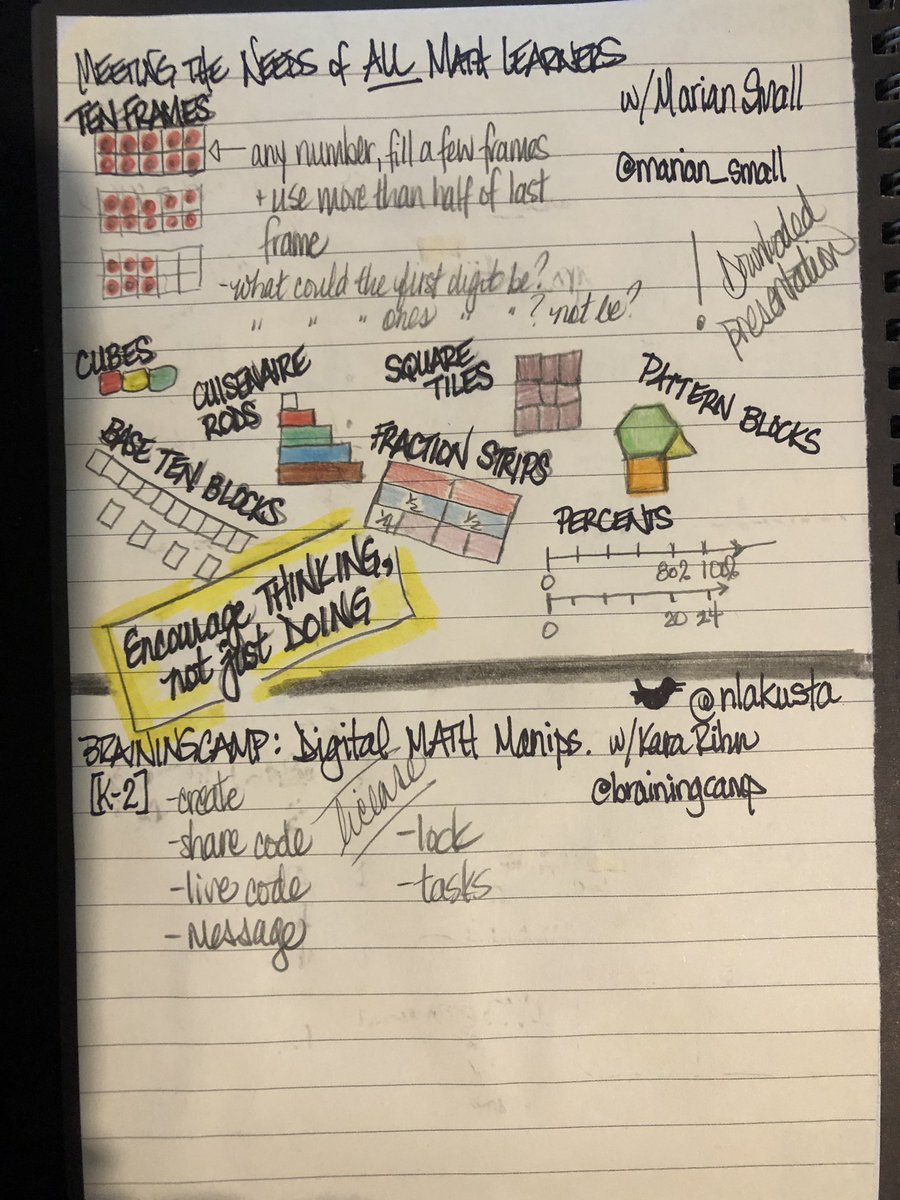 MEETING THE NEEDS of ALL MATH LEARNERS
w/ Marian Small
@marian_small
TEN FRAMES
any number, fill a few frames
+ use more than half of last
frame
-what could the first digit be?
" " " ones " " ? not be?
! Downloaded
presentation
CUBES
CUISENAIRE
RODS
SQUARE
TILES
PATTERN BLOCKS
BASE TEN BLOCKS
FRACTION STRIPS
1/2 1/2
1/4
PERCENTS
0 80% 100%
0 20 24
Encourage THINKING,
not just DOING
@nlakusta
BRAININGCAMP: Digital MATH Manips. w/ Kara Rihn
@brainingcamp
[K-2] -create
license
-share code
-live code
-message
-lock
-tasks